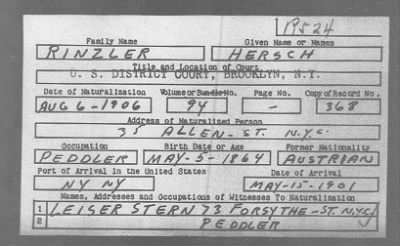 R524
Family Name Given Name or Names
RINZLER HERSCH
Title and Location of Court
U. S. DISTRICT COURT, BROOKLYN, N.Y.
Date of Naturalization Volume or Bundle No. Page No. Copy of Record No.
AUG 6-1906 94 - 368
Address of Naturalized Person
35 ALLEN-ST. N.Y.C.
Occupation Birth Date or Age Former Nationality
PEDDLER MAY-5-1864 AUSTRIAN
Port of Arrival in the United States Date of Arrival
NY NY MAY-15-1901
Names, Addresses and Occupations of Witnesses To Naturalization
1 LEISER STERN 73 FORSYTHE-ST. N.Y.C.
2 PEDDLER